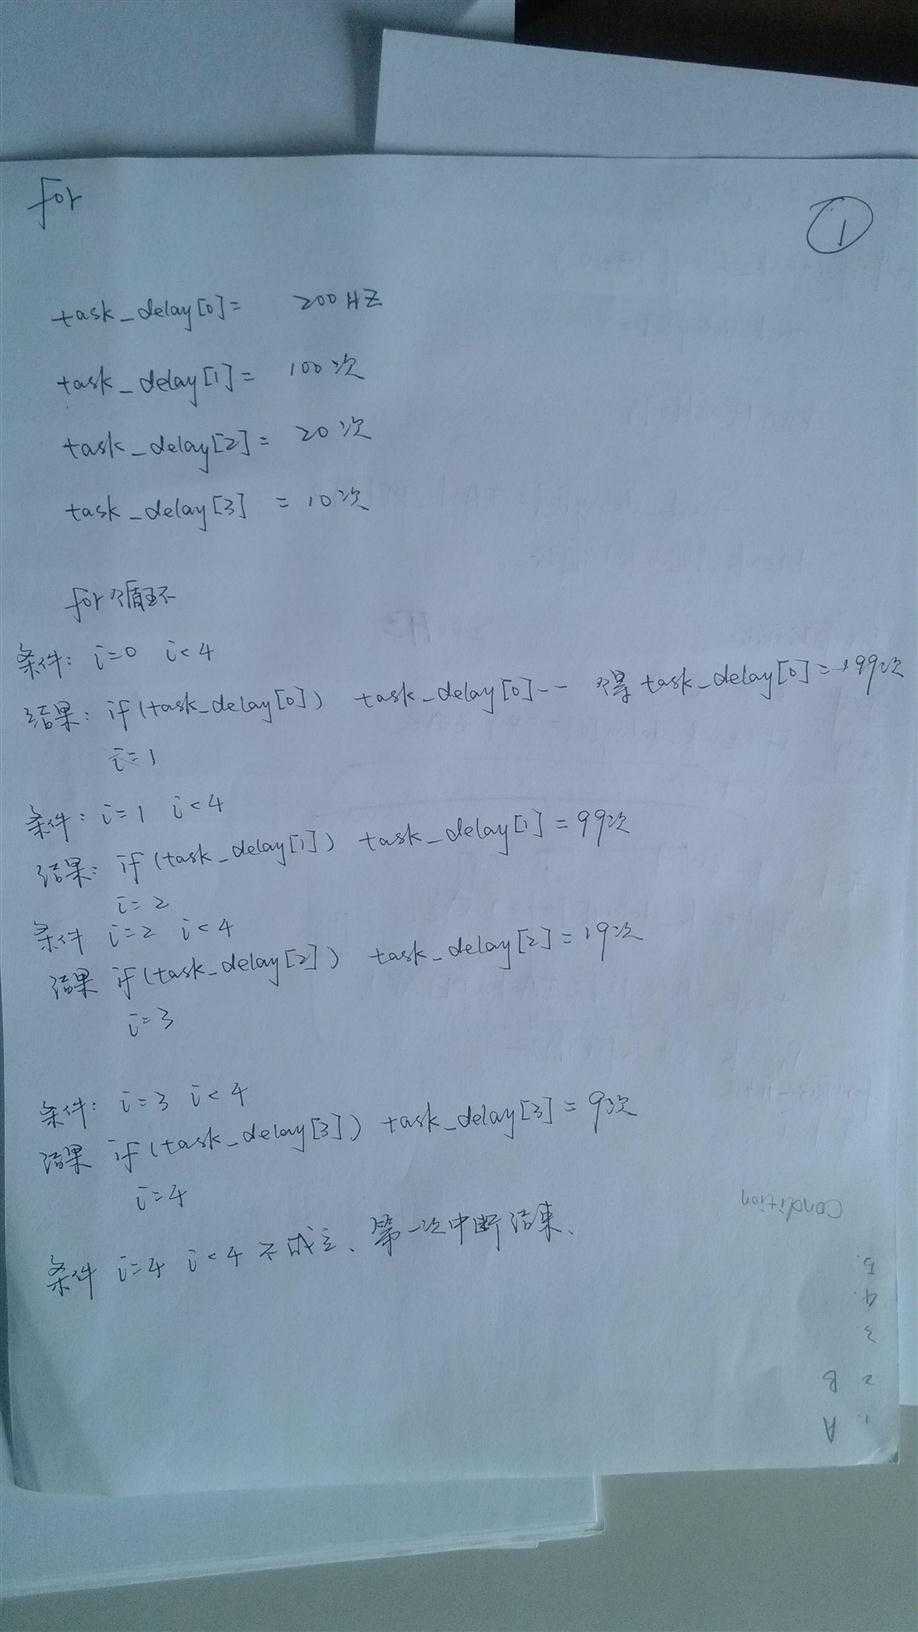 for
①
task_delay[0]= 200HZ
task_delay[1]= 100次
task_delay[2]= 20次
task_delay[3] = 10次
for循环
条件: i=0 i<4
结果: if(task_delay[0]) task_delay[0]-- 得 task_delay[0]=199次
i=1
条件: i=1 i<4
结果: if(task_delay[1]) task_delay[1]=99次
i=2
条件 i=2 i<4
结果 if(task_delay[2]) task_delay[2]=19次
i=3
条件: i=3 i<4
结果 if(task_delay[3]) task_delay[3]=9次
i=4
条件 i=4 i<4 不成立、第一次中断结束、
condition
5.
4.
3
2 B
1. A